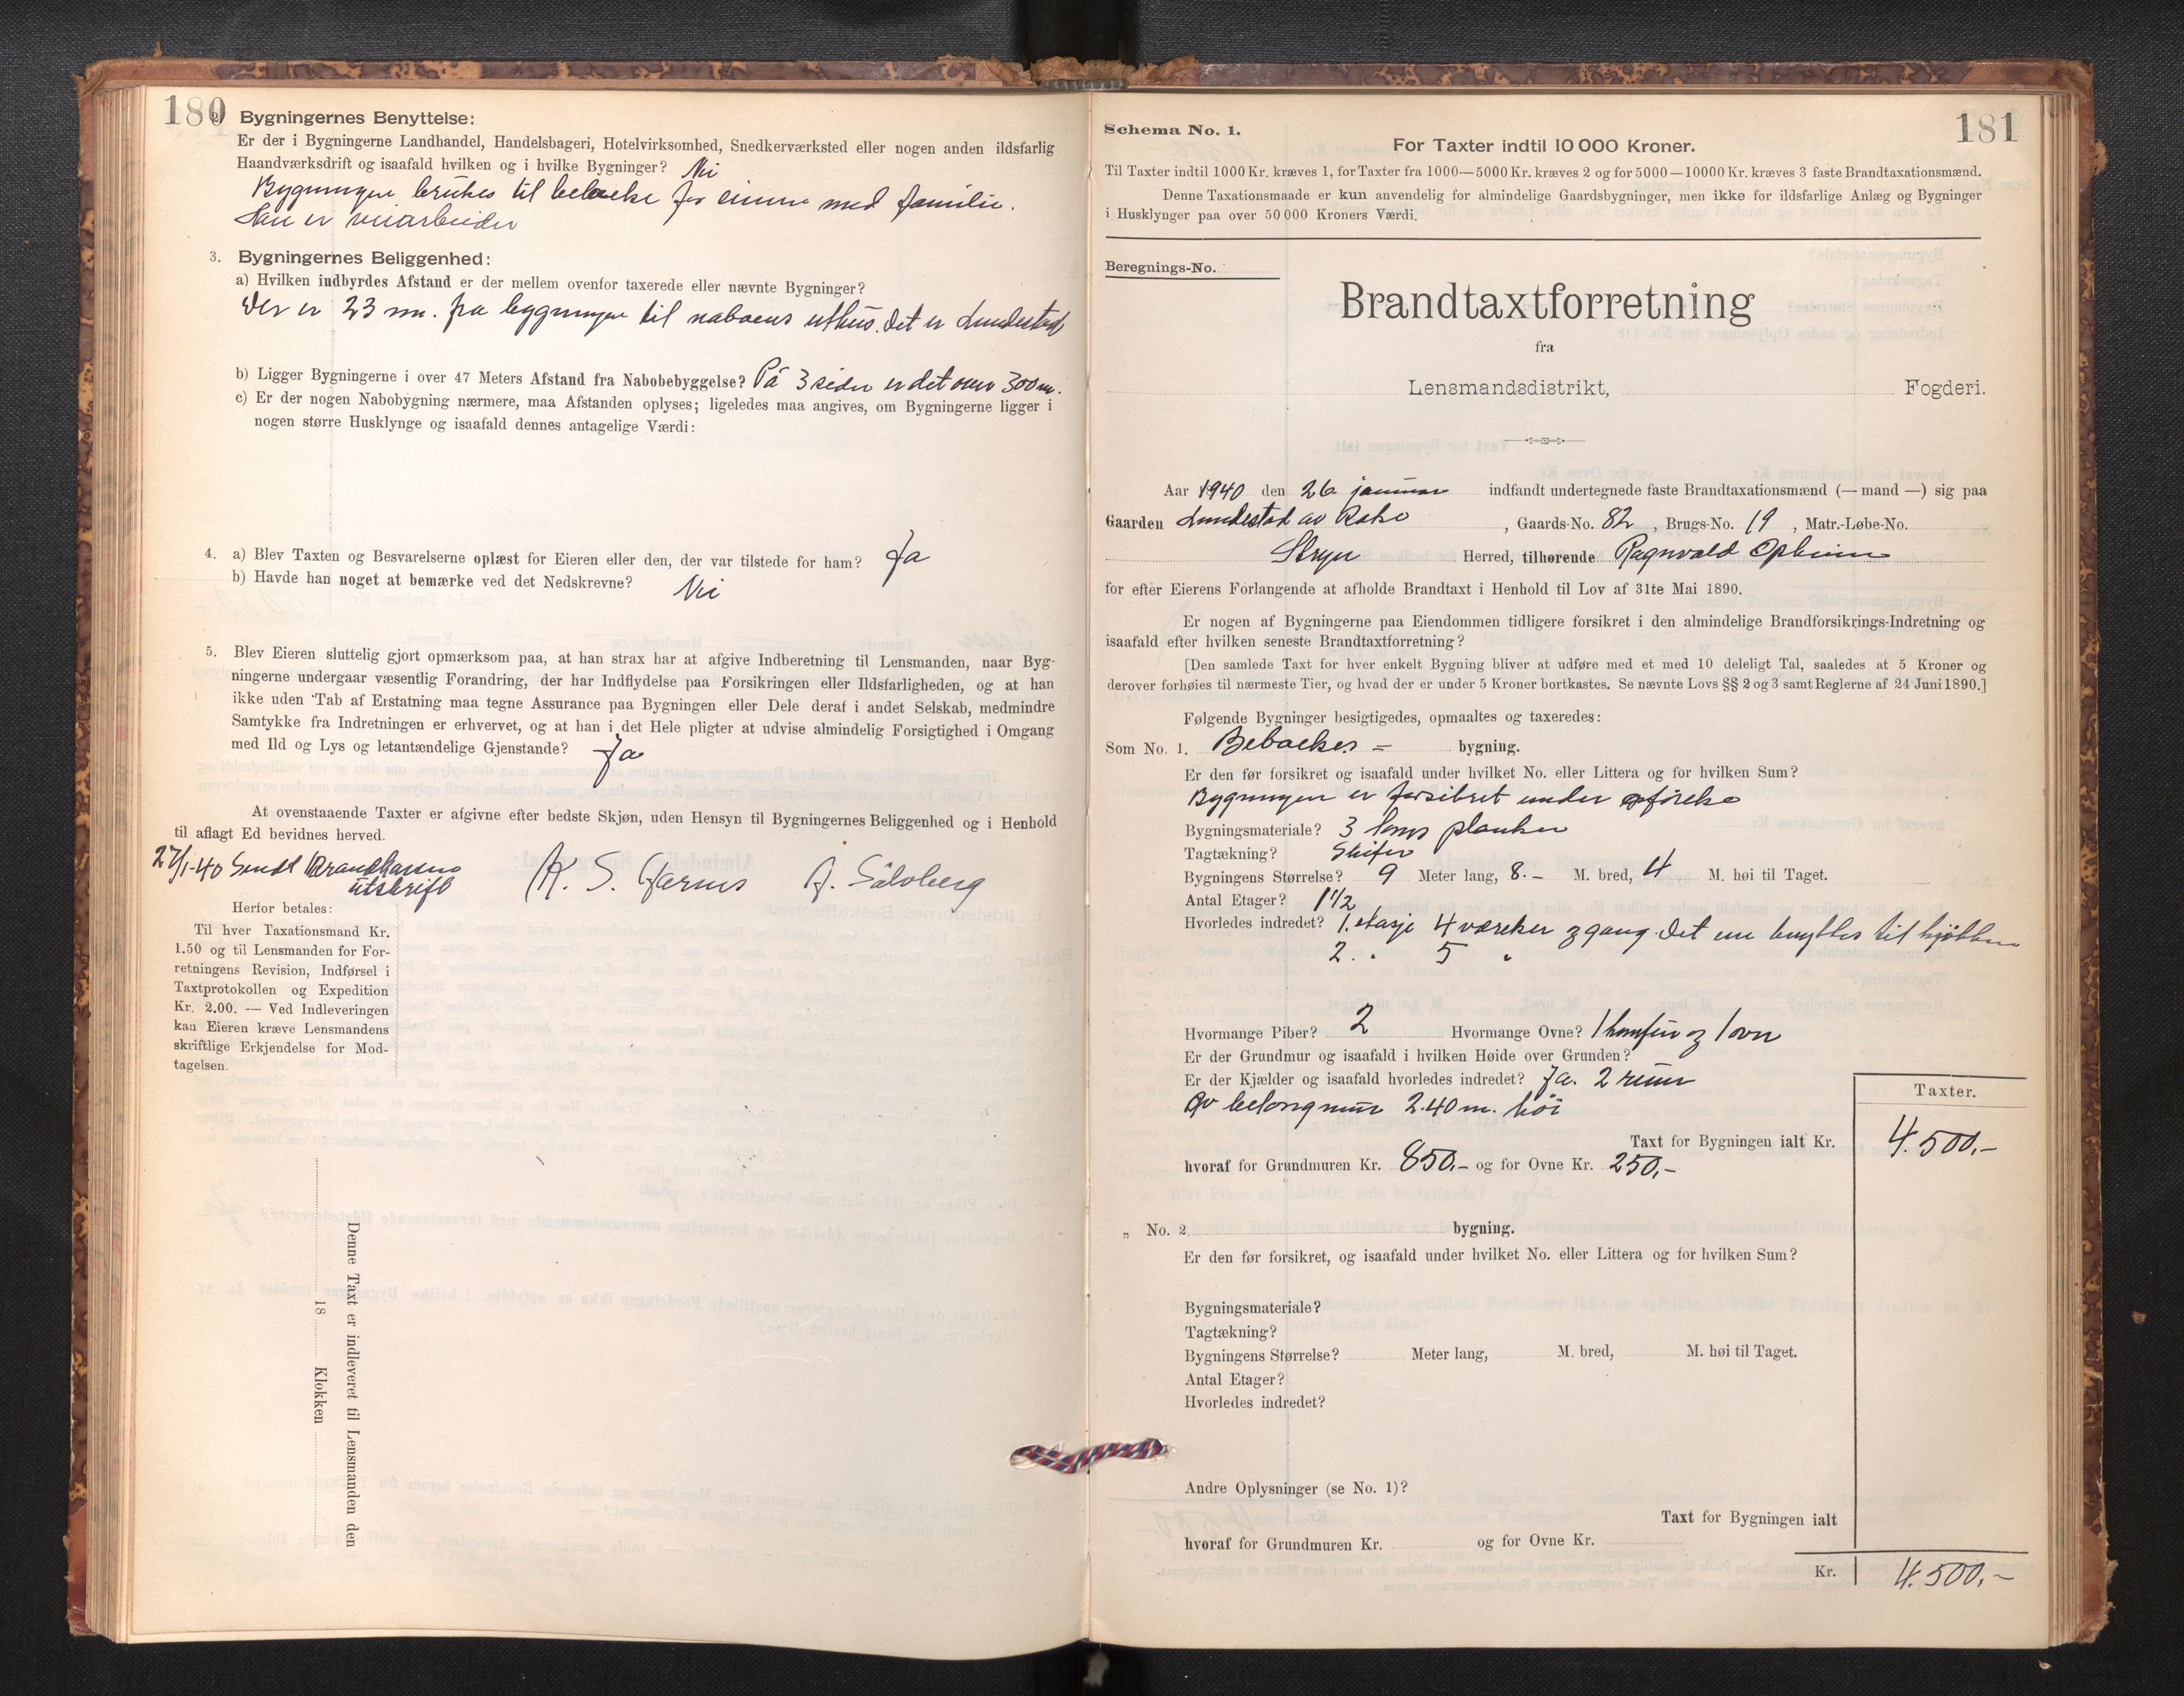 180
2. Bygningernes Benyttelse:
Er der i Bygningerne Landhandel, Handelsbageri, Hotelvirksomhed, Snedkerværksted eller nogen anden ildsfarlig
Haandværksdrift og isaafald hvilken og i hvilke Bygninger? Nei
Bygningen brukes til beboelse for eieren med familie.
Han er veiarbeider
3. Bygningernes Beliggenhed:
a) Hvilken indbyrdes Afstand er der mellem ovenfor taxerede eller nævnte Bygninger?
Der er 23 m. fra bygningen til naboens uthus. Det er Lundestad
b) Ligger Bygningerne i over 47 Meters Afstand fra Nabobebyggelse? På 3 sider er det over 300 m.
c) Er der nogen Nabobygning nærmere, maa Afstanden oplyses; ligeledes maa angives, om Bygningerne ligger i
nogen større Husklynge og isaafald dennes antagelige Værdi:
4. a) Blev Taxten og Besvarelserne oplæst for Eieren eller den, der var tilstede for ham? Ja
b) Havde han noget at bemærke ved det Nedskrevne? Nei
5. Blev Eieren sluttelig gjort opmærksom paa, at han strax har at afgive Indberetning til Lensmanden, naar Byg-
ningerne undergaar væsentlig Forandring, der har Indflydelse paa Forsikringen eller Ildsfarligheden, og at han
ikke uden Tab af Erstatning maa tegne Assurance paa Bygningen eller Dele deraf i andet Selskab, medmindre
Samtykke fra Indretningen er erhvervet, og at han i det Hele pligter at udvise almindelig Forsigtighed i Omgang
med Ild og Lys og letantændelige Gjenstande? Ja
At ovenstaaende Taxter er afgivne efter bedste Skjøn, uden Hensyn til Bygningernes Beliggenhed og i Henhold
til aflagt Ed bevidnes herved.
27/1-40 Sendt Brandkassen
utskrift
K. S. Garnes A. Sølvberg
Herfor betales:
Til hver Taxationsmand Kr.
1.50 og til Lensmanden for For-
retningens Revision, Indførsel i
Taxtprotokollen og Expedition
Kr. 2.00. — Ved Indleveringen
kan Eieren kræve Lensmandens
skriftlige Erkjendelse for Mod-
tagelsen.
Denne Taxt er indleveret til Lensmanden den
18 Klokken
181
Schema No. 1.
For Taxter indtil 10 000 Kroner.
Til Taxter indtil 1000 Kr. kræves 1, for Taxter fra 1000—5000 Kr. kræves 2 og for 5000—10000 Kr. kræves 3 faste Brandtaxationsmænd.
Denne Taxationsmaade er kun anvendelig for almindelige Gaardsbygninger, men ikke for ildsfarlige Anlæg og Bygninger
i Husklynger paa over 50 000 Kroners Værdi.
Beregnings-No.
Brandtaxtforretning
fra
Lensmandsdistrikt, Fogderi.
Aar 1940 den 26 januar indfandt undertegnede faste Brandtaxationsmænd (—mand—) sig paa
Gaarden Lundestad av Rake, Gaards-No. 82, Brugs-No. 19, Matr.-Løbe-No.
Stryn Herred, tilhørende Ragnvald Opheim
for efter Eierens Forlangende at afholde Brandtaxt i Henhold til Lov af 31te Mai 1890.
Er nogen af Bygningerne paa Eiendommen tidligere forsikret i den almindelige Brandforsikrings-Indretning og
isaafald efter hvilken seneste Brandtaxtforretning?
[Den samlede Taxt for hver enkelt Bygning bliver at udføre med et med 10 deleligt Tal, saaledes at 5 Kroner og
derover forhøies til nærmeste Tier, og hvad der er under 5 Kroner bortkastes. Se nævnte Lovs §§ 2 og 3 samt Reglerne af 24 Juni 1890.]
Følgende Bygninger besigtigedes, opmaaltes og taxeredes:
Som No. 1. Beboelses = bygning.
Er den før forsikret og isaafald under hvilket No. eller Littera og for hvilken Sum?
Bygningen er forsikret under opførelse
Bygningsmateriale? 3 toms planker
Tagtækning? Skifer
Bygningens Størrelse? 9 Meter lang, 8.- M. bred, 4 M. høi til Taget.
Antal Etager? 1 1/2
Hvorledes indredet? 1. etasje 4 værelser og gang. Det ene benyttes til kjøkken
2. " 5 "
Hvormange Piber? 2 Hvormange Ovne? 1 komfur og 1 ovn
Er der Grundmur og isaafald i hvilken Høide over Grunden?
Er der Kjælder og isaafald hvorledes indredet? Ja. 2 rum
Av betongmur 2.40 m. høi
Taxter.
Taxt for Bygningen ialt Kr. 4.500,-
hvoraf for Grundmuren Kr. 850,- og for Ovne Kr. 250,-
„ No. 2 bygning.
Er den før forsikret, og isaafald under hvilket No. eller Littera og for hvilken Sum?
Bygningsmateriale?
Tagtækning?
Bygningens Størrelse? Meter lang, M. bred, M. høi til Taget.
Antal Etager?
Hvorledes indredet?
Andre Oplysninger (se No. 1)?
Taxt for Bygningen ialt
hvoraf for Grundmuren Kr. og for Ovne Kr.
Kr. 4.500,-